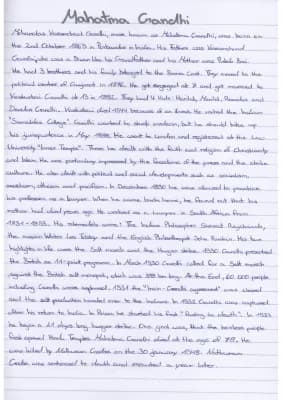 Mahatma Gandhi
Mohandas Karamchand Gandhi, more known as Mahatma Gandhi, was born on
the 2nd October 1869 in Porbandar in India. His Father was Karamchand
Gandhi, who was a Diwan like his Grandfather and his Mother was Putali Bai.
He had 3 brothers and his family belonged to the Bania Cast. They moved to the
political center of Gujarat in 1876. He got engaged at 7 and got married to
Kasturbai Gandhi at 13 in 1882. They had 4 kids: Harilal, Manilal, Ramdas and
Devdas Gandhi. Kasturbai died 1944 because of an illness. He visited the Indian
"Samaldas College". Gandhi wanted to study medicin, but he should take up
his jurisprudence in May 1888. He went to London and registered at the Law
University "Inner Temple". There he dealt with the faith and religion of Christianity
and Islam. He was particulary impressed by the freedoms of the press and the strike
culture. He also dealt with political and social developments such as socialism,
anarchism, atheism and pacifism. In December 1890 he was allowed to practice
his profession as a lawyer. When he came back home, he found out that his
mother had died years ago. He worked as a lawyer in South African from
1893-1913. His intermediate name: The Indian Philosopher Shrimad Rajchandra,
the russian Writer Leo Tolstoy and the English Philosopher John Ruskin. His two
highlights in life were the Salt march and the Hunger strike. 1930 Gandhi presented
the British an 11-point programm. In March 1930 Gandhi called for a Salt march
against the British salt monopoly, which was 388 km long. At the End, 60.000 people
including Gandhi were captured. 1931 the "Irwin-Gandhi agreement" was closed
and the salt production handed over to the Indians. In 1932 Gandhi was captured
after his return to India. In Prison he started his first "fasting to death". In 1933
he began a 21 days long hunger strike. One goal was, that the casteless people
first opened Hindu Temples. Mahatma Gandhi died at the age of 78. He
was killed by Nathuram Godse on the 30 January 1948. Nathuram
Godse was sentenced to death and executed a year later.